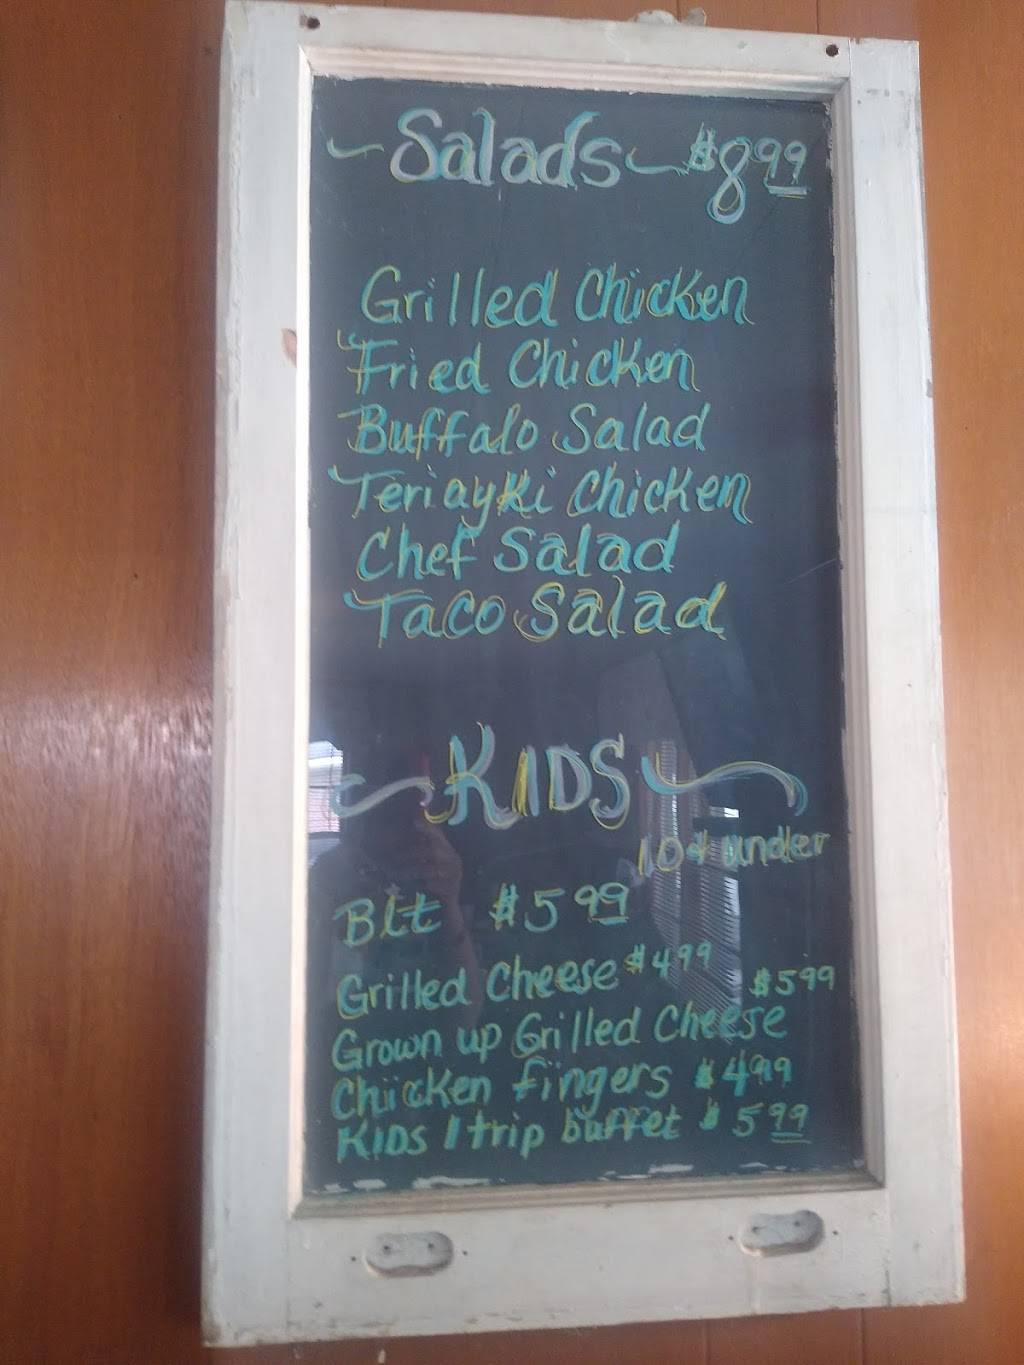 Salads $8.99
Grilled Chicken
Fried Chicken
Buffalo Salad
Teriayki Chicken
Chef Salad
Taco Salad
KIDS
10 & under
Blt $5.99
Grilled Cheese $4.99
$5.99
Grown up Grilled Cheese
Chicken fingers $4.99
KIDS 1 trip buffet $5.99